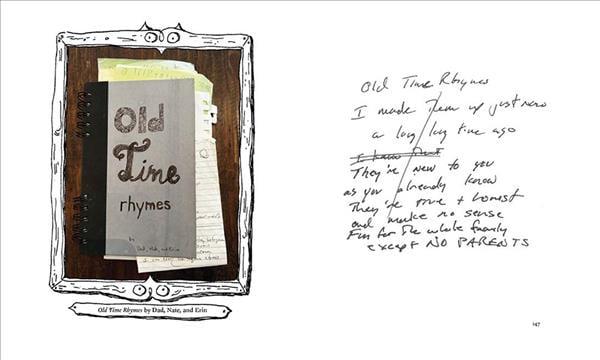 Old
Time
rhymes
by
Dad, Nate, and Erin
Old Time Rhymes by Dad, Nate, and Erin
Old Time Rhymes
I made them up just now
a long long time ago
They're new to you
as you already know
They're true + honest
and make no sense
Fun for the whole family
except NO PARENTS
147